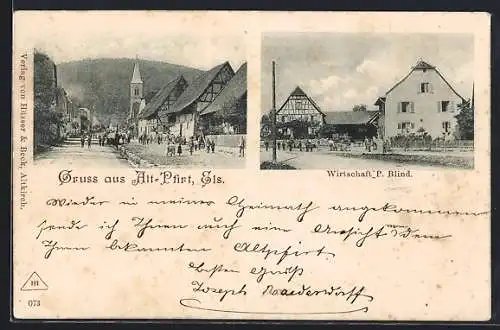 Verlag von Büsser & Beck, Altkirch.
Gruss aus Alt-Pfirt, Els.
Wirtschaft P. Blind.
Wieder in meiner Heimath angekommen
sende ich Ihnen auch eine Ansicht von dem
Ihnen bekannten Altpfirt
Besten Gruß
Joseph
HI
073